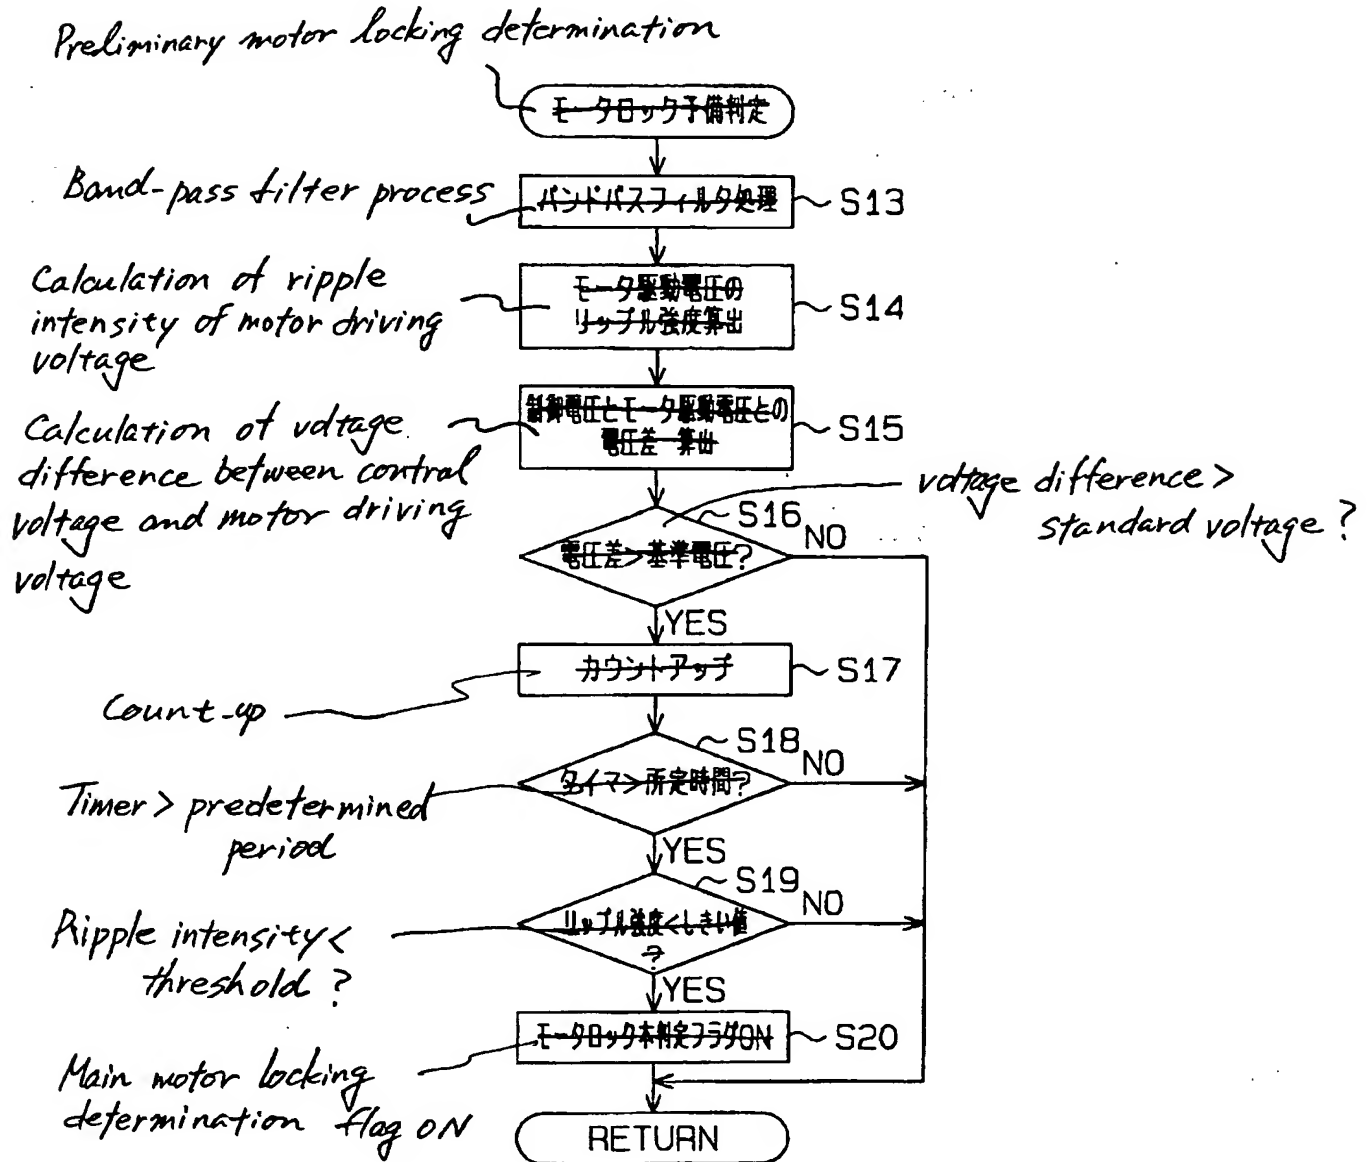 Preliminary motor locking determination
モータロック予備判定
Band-pass filter process
バンドパスフィルタ処理
S13
Calculation of ripple
intensity of motor driving
voltage
モータ駆動電圧の
リップル強度算出
S14
Calculation of voltage
difference between control
voltage and motor driving
voltage
制御電圧とモータ駆動電圧との
電圧差 算出
S15
voltage difference >
standard voltage ?
S16
電圧差>基準電圧?
NO
YES
Count-up
カウントアップ
S17
Timer > predetermined
period
S18
タイマ>所定時間?
NO
YES
Ripple intensity <
threshold ?
S19
リップル強度<しきい値
?
NO
YES
Main motor locking
determination flag ON
モータロック本判定フラグON
S20
RETURN